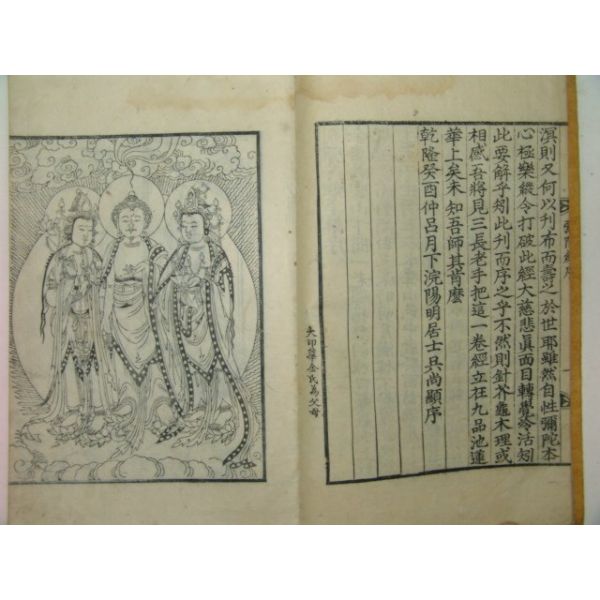 溟則又何以刊布而壽之於世耶雖然自性彌陀本
心極樂縱令打破此經大慈悲眞面目轉覺冷活矧
此要解乎矧此刊而序之乎不然則針芥龜木理或
相感吾將見三長老手把這一卷經立在九品池蓮
華上矣未知吾師其肯麼
乾隆癸酉仲呂月下浣陽明居士具尚顯序
大印華金氏爲父母